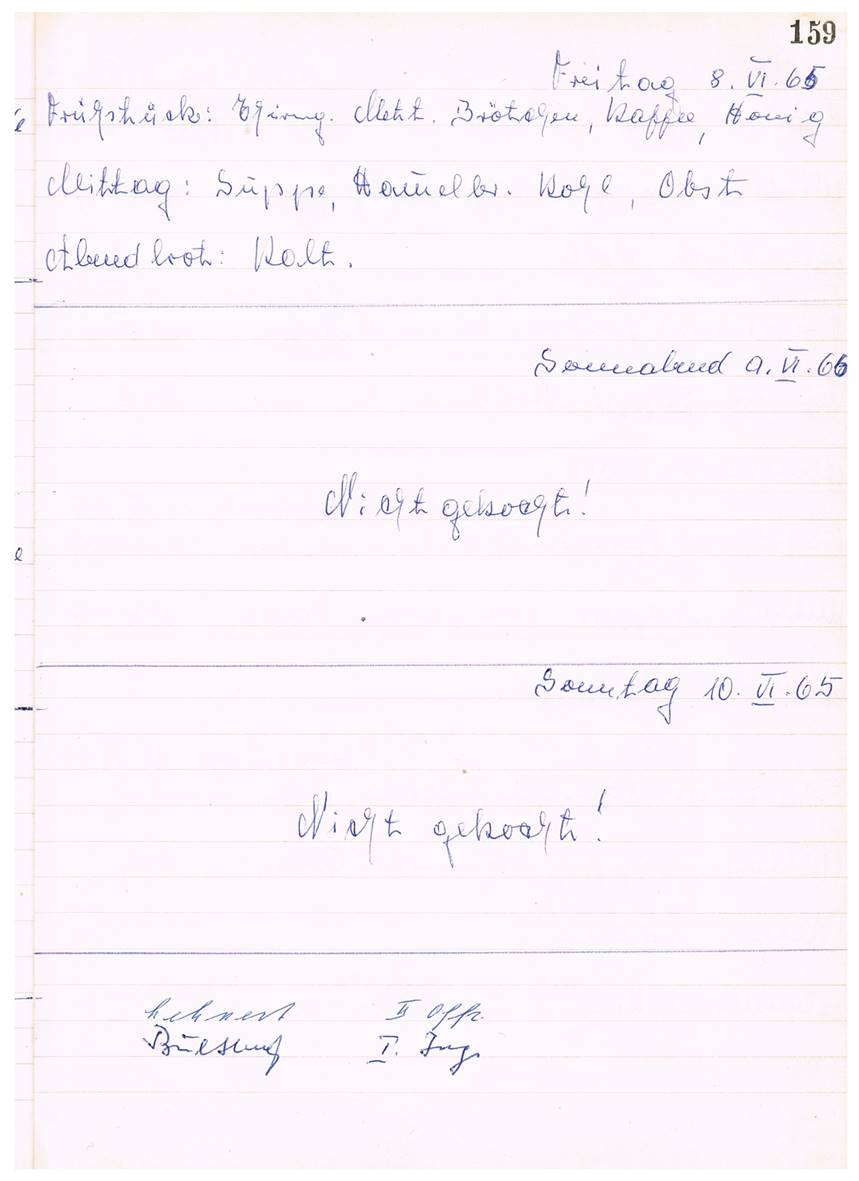 159
Freitag 8. VI. 65
Frühstück: Thüring. Mett. Brötchen, Kaffee, Honig
Mittag: Suppe, Hammelbr. Kohl, Obst
Abendbrot: Kalt.
Sonnabend 9. VI. 66
Nicht gekocht!
Sonntag 10. VI. 65
Nicht gekocht!
Lehnert II Offz.
I. Ing.